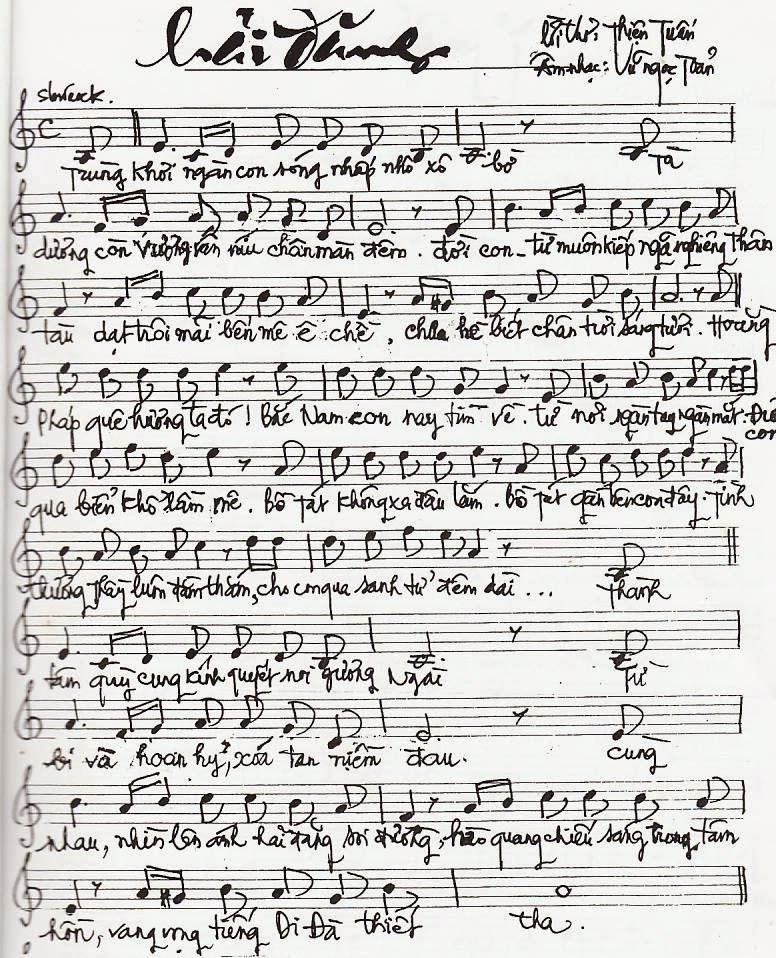 Hải Đăng
Lời thơ: Thiện Tuấn
Âm nhạc: Vũ Ngọc Toản
Slowrock.
Trùng khơi ngàn con sóng nhấp nhô xô bờ Tà
dương còn vương vấn níu chân màn đêm. đời con từ muôn kiếp ngả nghiêng thân
tàu dạt trôi mãi bến mê ê chề, chưa hề biết chân trời sáng tươi. Hoằng
Pháp quê hương ta đó! Bắc Nam con nay tìm về. từ nơi ngàn tay ngàn mắt. Đưa
con
qua biển khổ lầm mê. bồ tát không xa đâu lắm. bồ tát gần bên con đây. Tình
thương Thầy luôn đằm thắm, cho con qua sanh tử đêm dài ... Thành
tâm quỳ cung kính quyết noi gương Ngài. Từ
bi và hoan hỷ, xoá tan niềm đau. cùng
nhau, nhìn lên ánh hải đăng soi đường, hào quang chiếu sáng trong tâm
hồn, vang vọng tiếng Di Đà thiết tha.